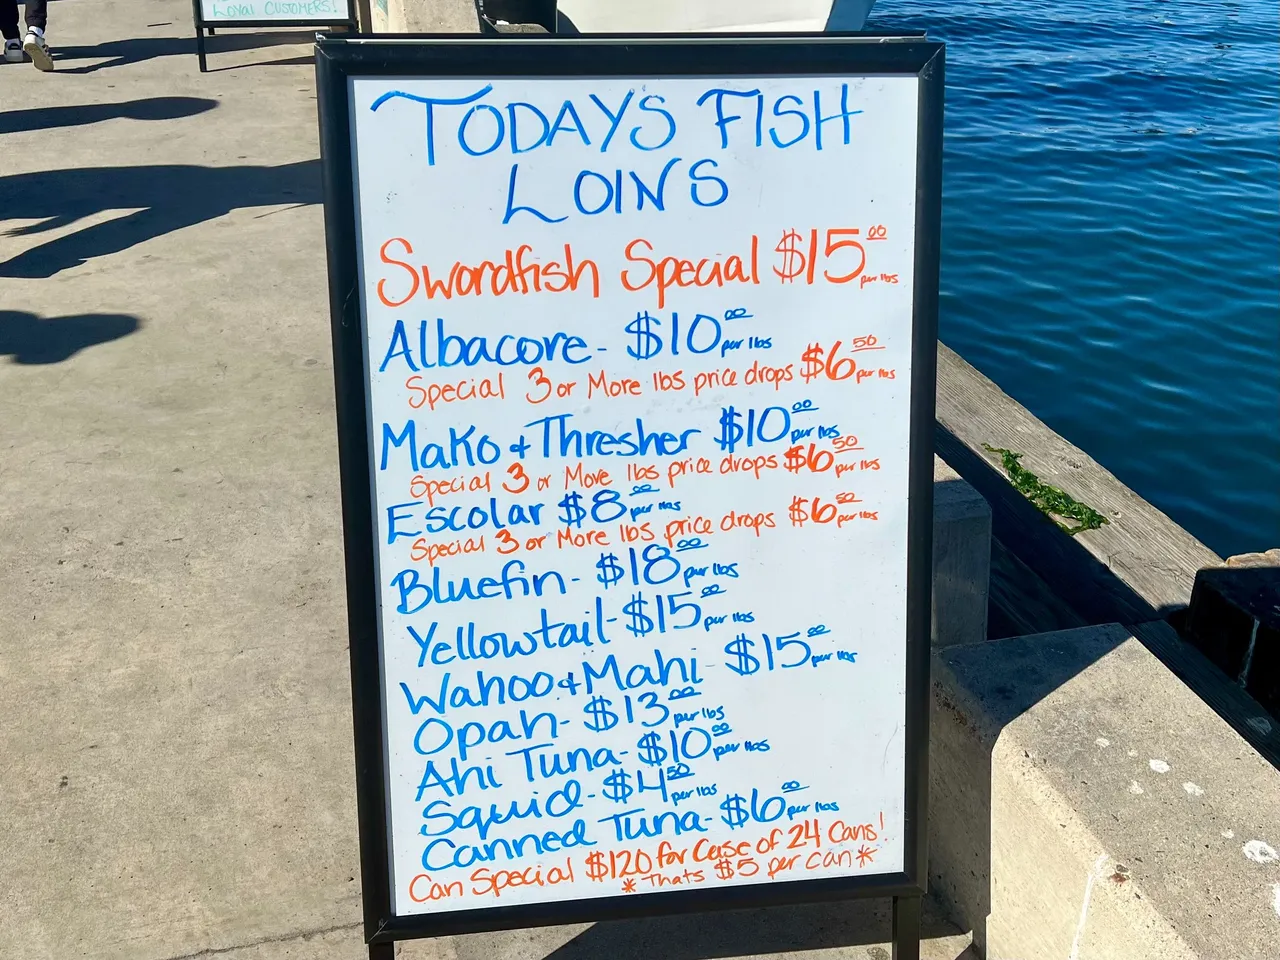 Loyal Customers!
TODAYS FISH
LOINS
Swordfish Special $15.00 per lbs
Albacore- $10.00 per lbs
Special 3 or More lbs price drops $6.50 per lbs
Mako + Thresher $10.00 per lbs
Special 3 or More lbs price drops $6.50 per lbs
Escolar $8.00 per lbs
Special 3 or More lbs price drops $6.50 per lbs
Bluefin- $18.00 per lbs
Yellowtail- $15.00 per lbs
Wahoo + Mahi $15.00 per lbs
Opah- $13.00 per lbs
Ahi Tuna- $10.00 per lbs
Squid- $4.50 per lbs
Canned Tuna- $6.00 per lbs
Can Special $120 for Case of 24 Cans!
*Thats $5 per can*